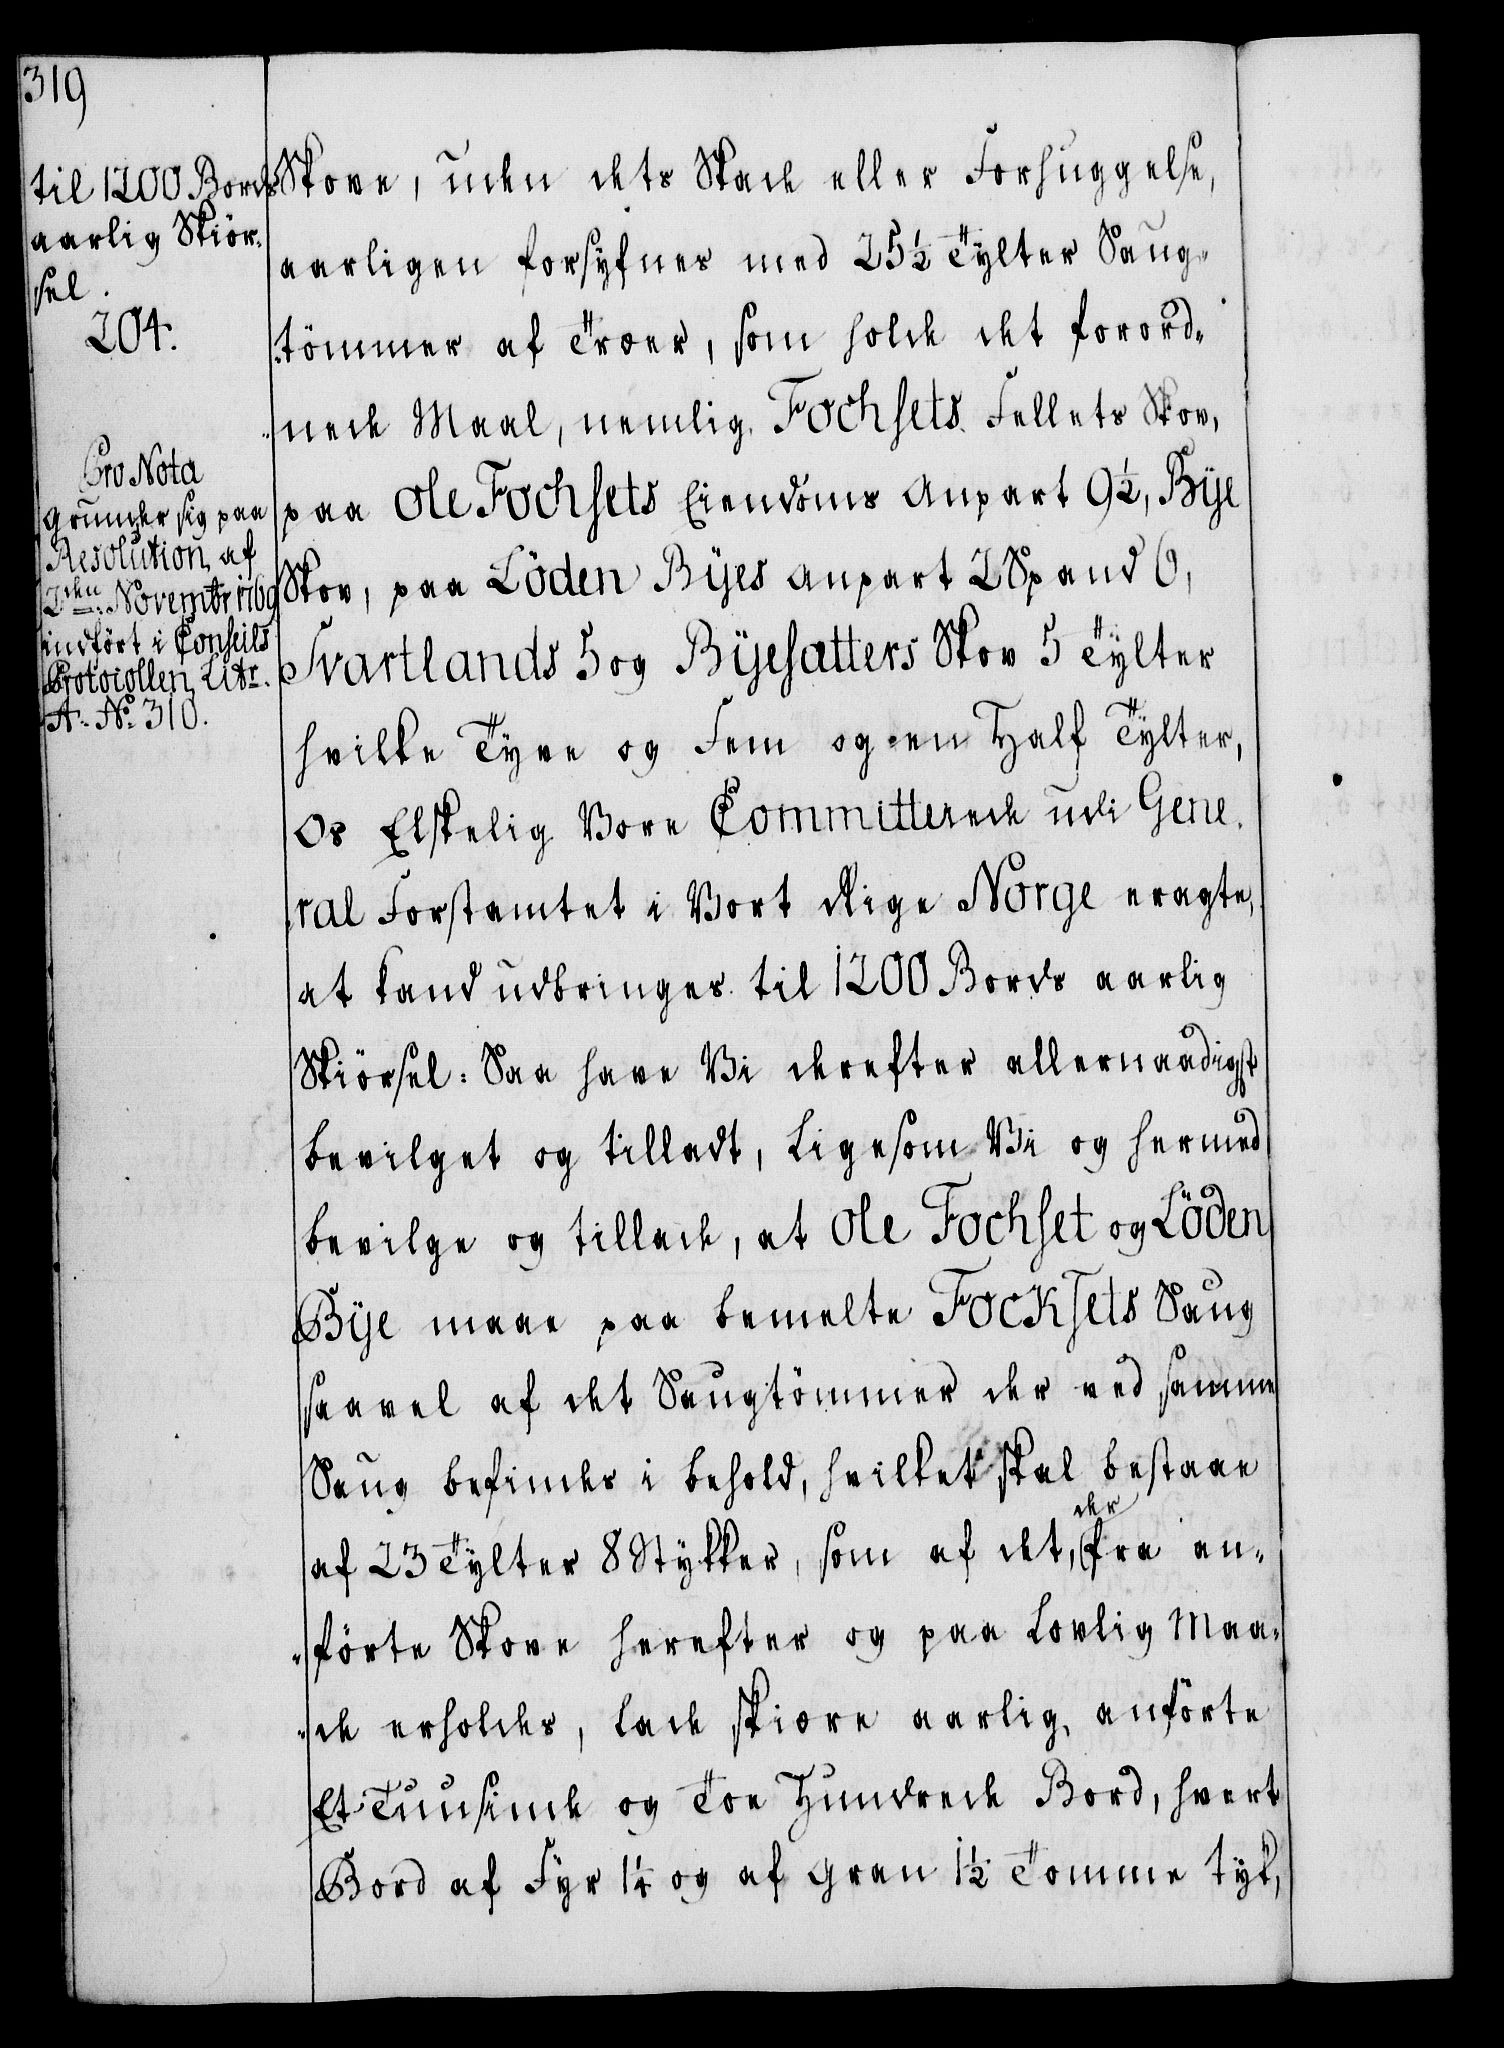 319
til 1200 Bords
aarlig Skiör-
sel.
204.
Pro Nota
grunder sig paa
Resolution af
2den Novembr 1769
indfört i Conseils
Protocollen Litr.
A. No 310.
Skove, uden dets Skade eller Forhuggelse,
aarligen forsÿnes med 25½ Tÿlter Saug-
tömmer af Træer, som holde det forord-
nede Maal, nemlig, Fochsets Fellets Skov,
paa Ole Fochsets Eiendoms Anpart 9½, Bÿe
Skov, paa Löden Bÿes Anpart 2 Spand 6,
Svartlands 5 og Bÿesatters Skov 5 Tÿlter
hvilke Tyve og Fem og en Half Tÿlter,
Os Elskelig Vore Committerede udi Gene-
ral Forstamtet i Vort Rige Norge eragte,
at kand udbringes til 1200 Bords aarlig
Skiörsel: Saa have Vi derefter allernaadigst
bevilget og tilladt, Ligesom Vi og hermed
bevilge og tillade, at Ole Fochset og Löden
Bÿe maae paa bemelte Focksets Saug
saavel af det Saugtömmer der ved samme
Saug befindes i behold, hvilket skal bestaae
af 23 Tÿlter 8 Stÿkker, som af det, der fra an-
förte Skove herefter og paa Lovlig Maa-
de erholdes, lade skiære aarlig, anförte
Et Tuusinde og Toe Hundrede Bord, hvert
Bord af Fyr 1¼ og af Gran 1½ Tomme tÿk,